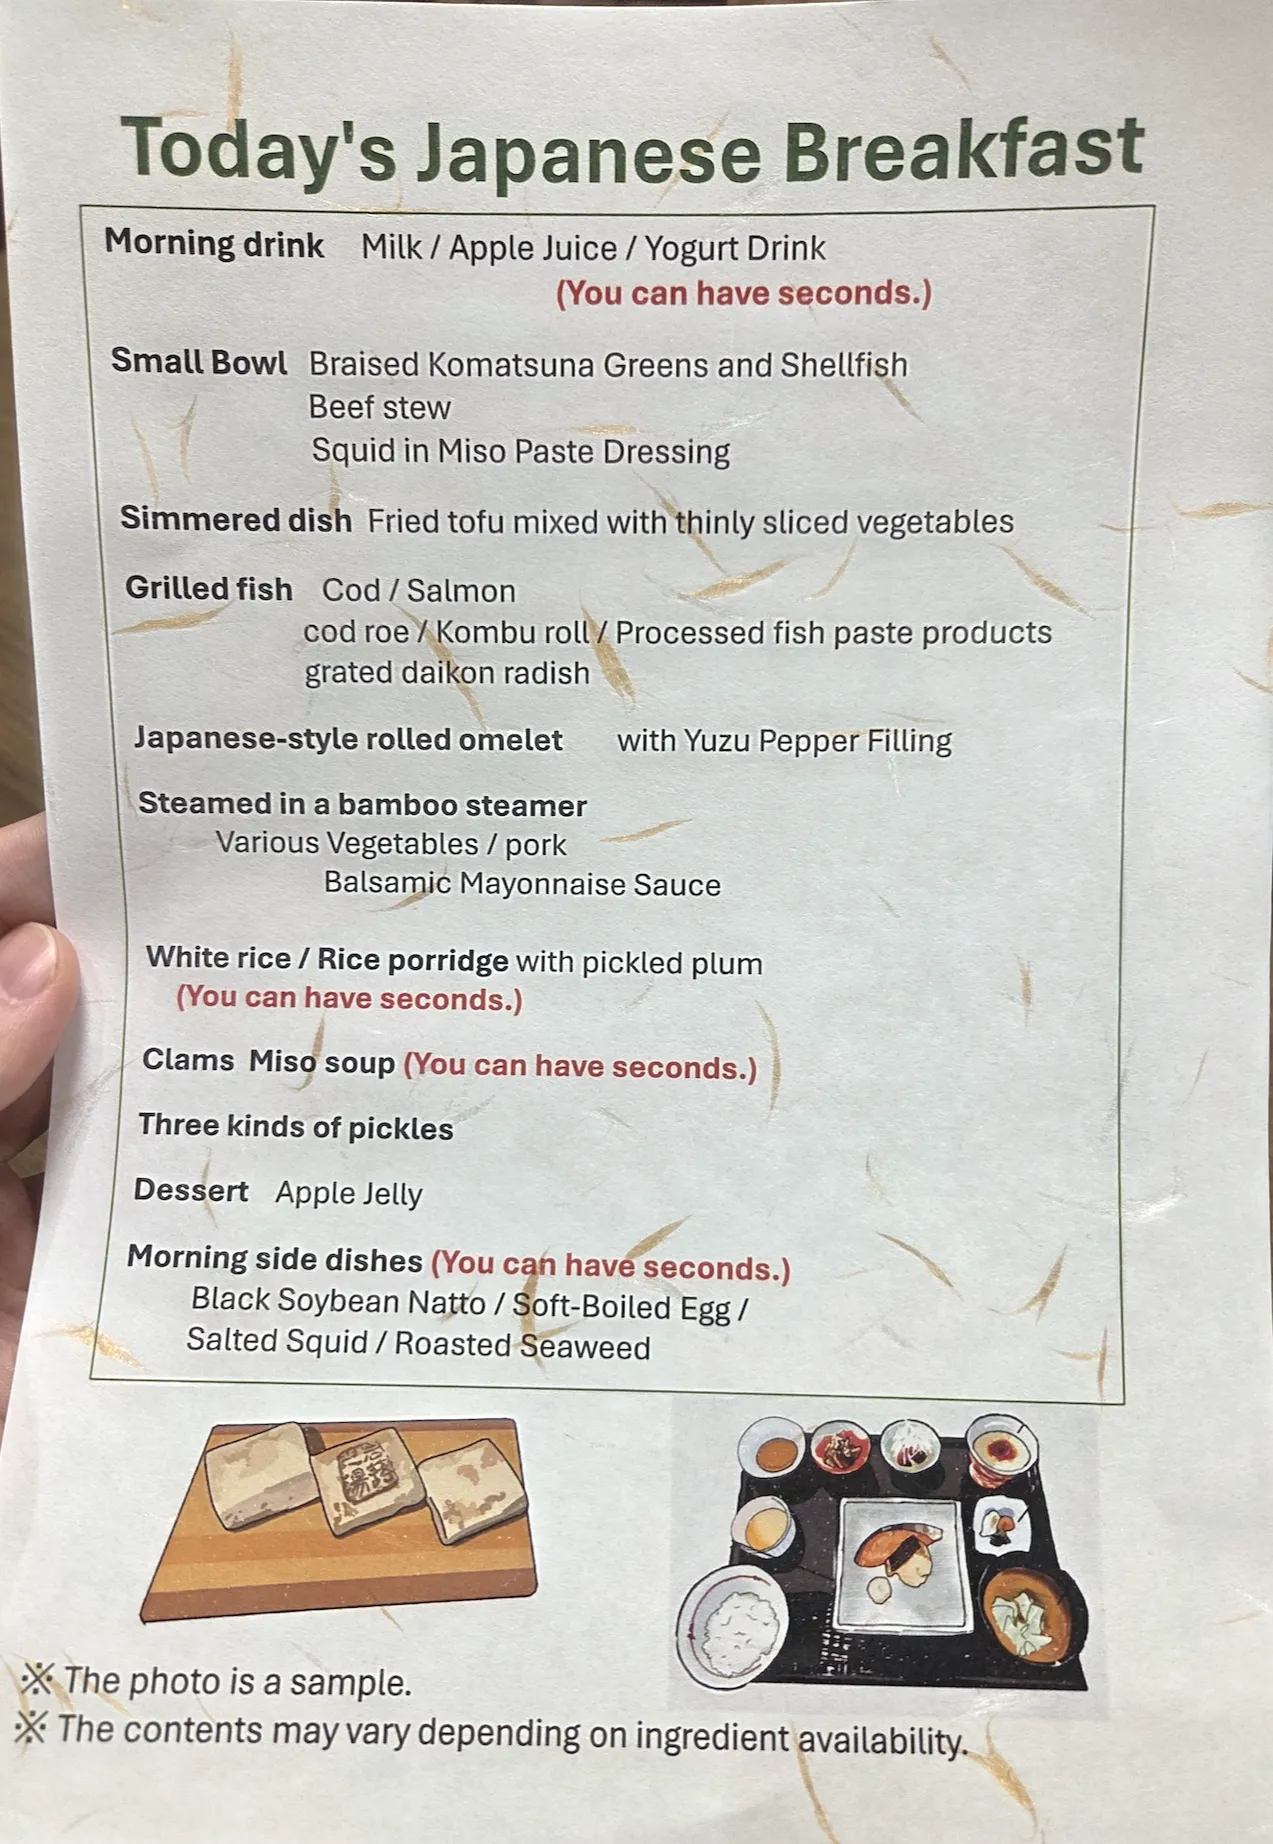 Today's Japanese Breakfast
Morning drink Milk / Apple Juice / Yogurt Drink
(You can have seconds.)
Small Bowl Braised Komatsuna Greens and Shellfish
Beef stew
Squid in Miso Paste Dressing
Simmered dish Fried tofu mixed with thinly sliced vegetables
Grilled fish Cod / Salmon
cod roe / Kombu roll / Processed fish paste products
grated daikon radish
Japanese-style rolled omelet with Yuzu Pepper Filling
Steamed in a bamboo steamer
Various Vegetables / pork
Balsamic Mayonnaise Sauce
White rice / Rice porridge with pickled plum
(You can have seconds.)
Clams Miso soup (You can have seconds.)
Three kinds of pickles
Dessert Apple Jelly
Morning side dishes (You can have seconds.)
Black Soybean Natto / Soft-Boiled Egg /
Salted Squid / Roasted Seaweed
※ The photo is a sample.
※ The contents may vary depending on ingredient availability.